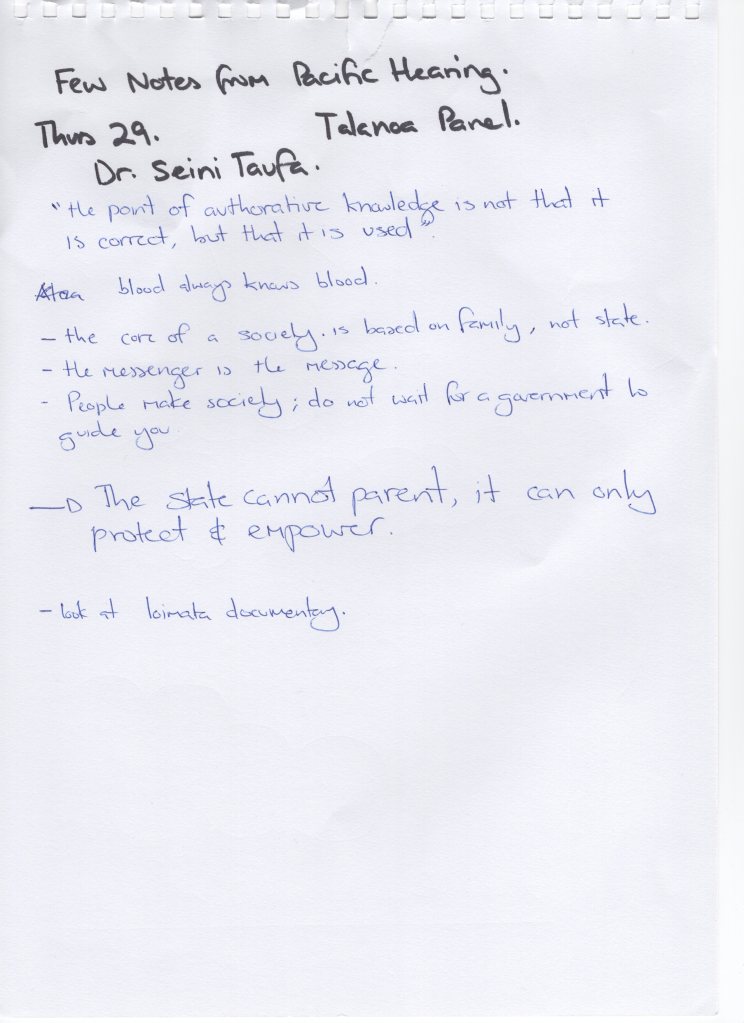 Few Notes from Pacific Hearing.
Thurs 29. Talanoa Panel.
Dr. Seini Taufa.
"the point of authorative knowledge is not that it
is correct, but that it is used".
blood always knows blood.
- the core of a society. is based on family, not state.
- the messenger is the message.
- People make society; do not wait for a government to
guide you
→ The state cannot parent, it can only
protect & empower.
- look at loimata documentary.